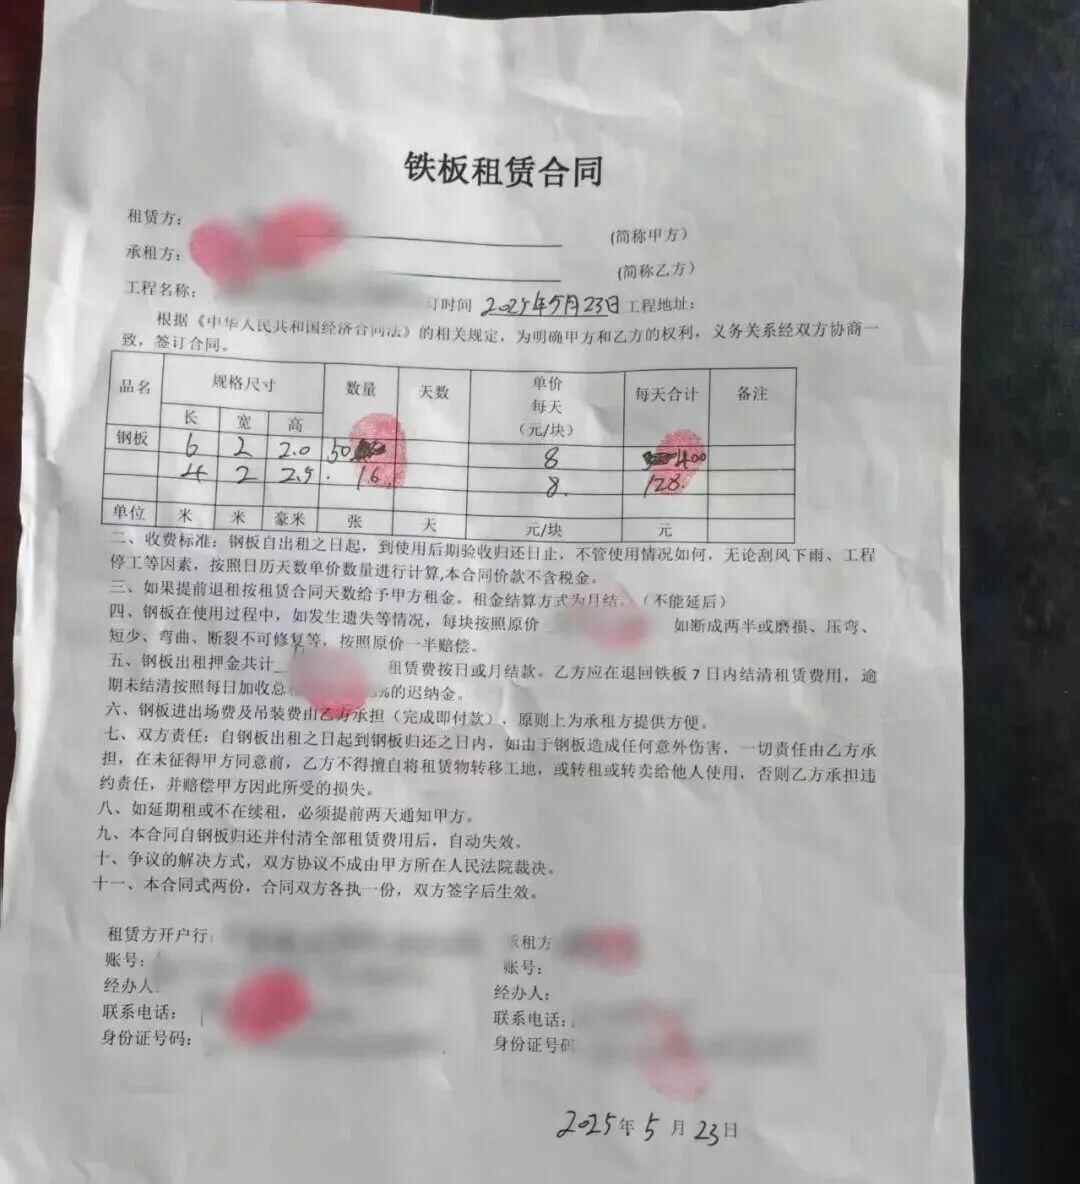 铁板租赁合同
租赁方: (简称甲方)
承租方: (简称乙方)
工程名称: 订时间 2025年5月23日 工程地址:
根据《中华人民共和国经济合同法》的相关规定，为明确甲方和乙方的权利，义务关系经双方协商一
致，签订合同。
品名 规格尺寸 数量 天数 单价 每天（元/块） 每天合计 备注
长 宽 高
钢板 6 2 2.0 50 8 400
4 2 2.5 16 8. 128.
单位 米 米 豪米 张 天 元/块 元
二、收费标准：钢板自出租之日起，到使用后期验收归还日止，不管使用情况如何，无论刮风下雨、工程
停工等因素，按照日历天数单价数量进行计算,本合同价款不含税金。
三、如果提前退租按租赁合同天数给予甲方租金。租金结算方式为月结。（不能延后）
四、钢板在使用过程中，如发生遗失等情况，每块按照原价 如断成两半或磨损、压弯、
短少、弯曲、断裂不可修复等，按照原价一半赔偿。
五、钢板出租押金共计 租赁费按日或月结款。乙方应在退回铁板 7 日内结清租赁费用，逾
期未结清按照每日加收总 %的迟纳金。
六、钢板进出场费及吊装费由乙方承担（完成即付款），原则上为承租方提供方便。
七、双方责任：自钢板出租之日起到钢板归还之日内，如由于钢板造成任何意外伤害，一切责任由乙方承
担，在未征得甲方同意前，乙方不得擅自将租赁物转移工地，或转租或转卖给他人使用，否则乙方承担违
约责任，并赔偿甲方因此所受的损失。
八、如延期租或不在续租，必须提前两天通知甲方。
九、本合同自钢板归还并付清全部租赁费用后，自动失效。
十、争议的解决方式，双方协议不成由甲方所在人民法院裁决。
十一、本合同式两份，合同双方各执一份，双方签字后生效。
租赁方开户行: 承租方
账号: 账号:
经办人: 经办人:
联系电话: 联系电话:
身份证号码: 身份证号码
2025年 5 月 23日